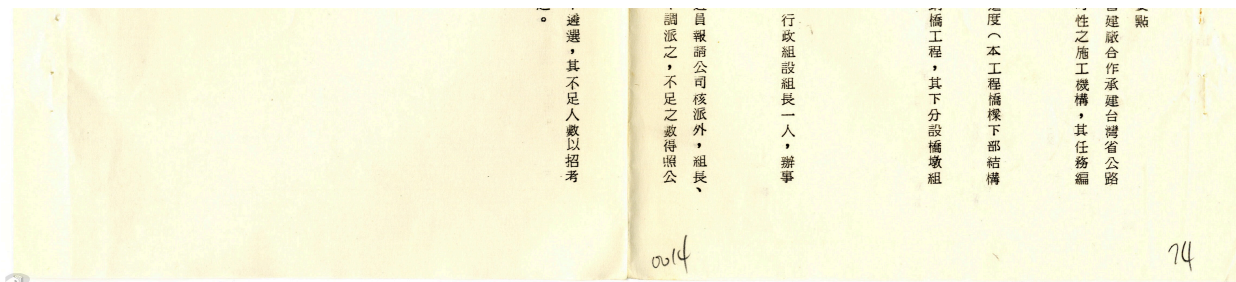 點
建廠合作承建台灣省公路
性之施工機構，其任務編
度（本工程橋樑下部結構
橋工程，其下分設橋墩組
行政組設組長一人，辦事
員報請公司核派外，組長、
調派之，不足之數得照公
遴選，其不足人數以招考
。
74
0014